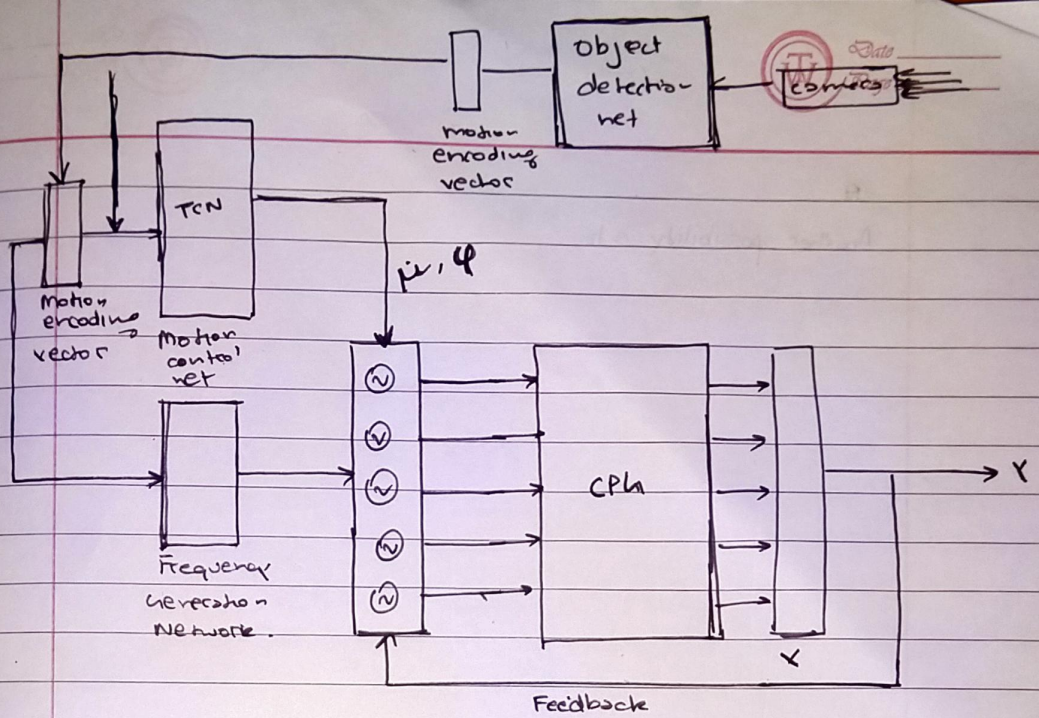 Object
detection
net
Date
camera
motion
encoding
vector
TCN
μ, φ
Motion
encoding
vector
Motion
control
net
CPG
Y
Frequency
Generation
Network.
Y
Feedback